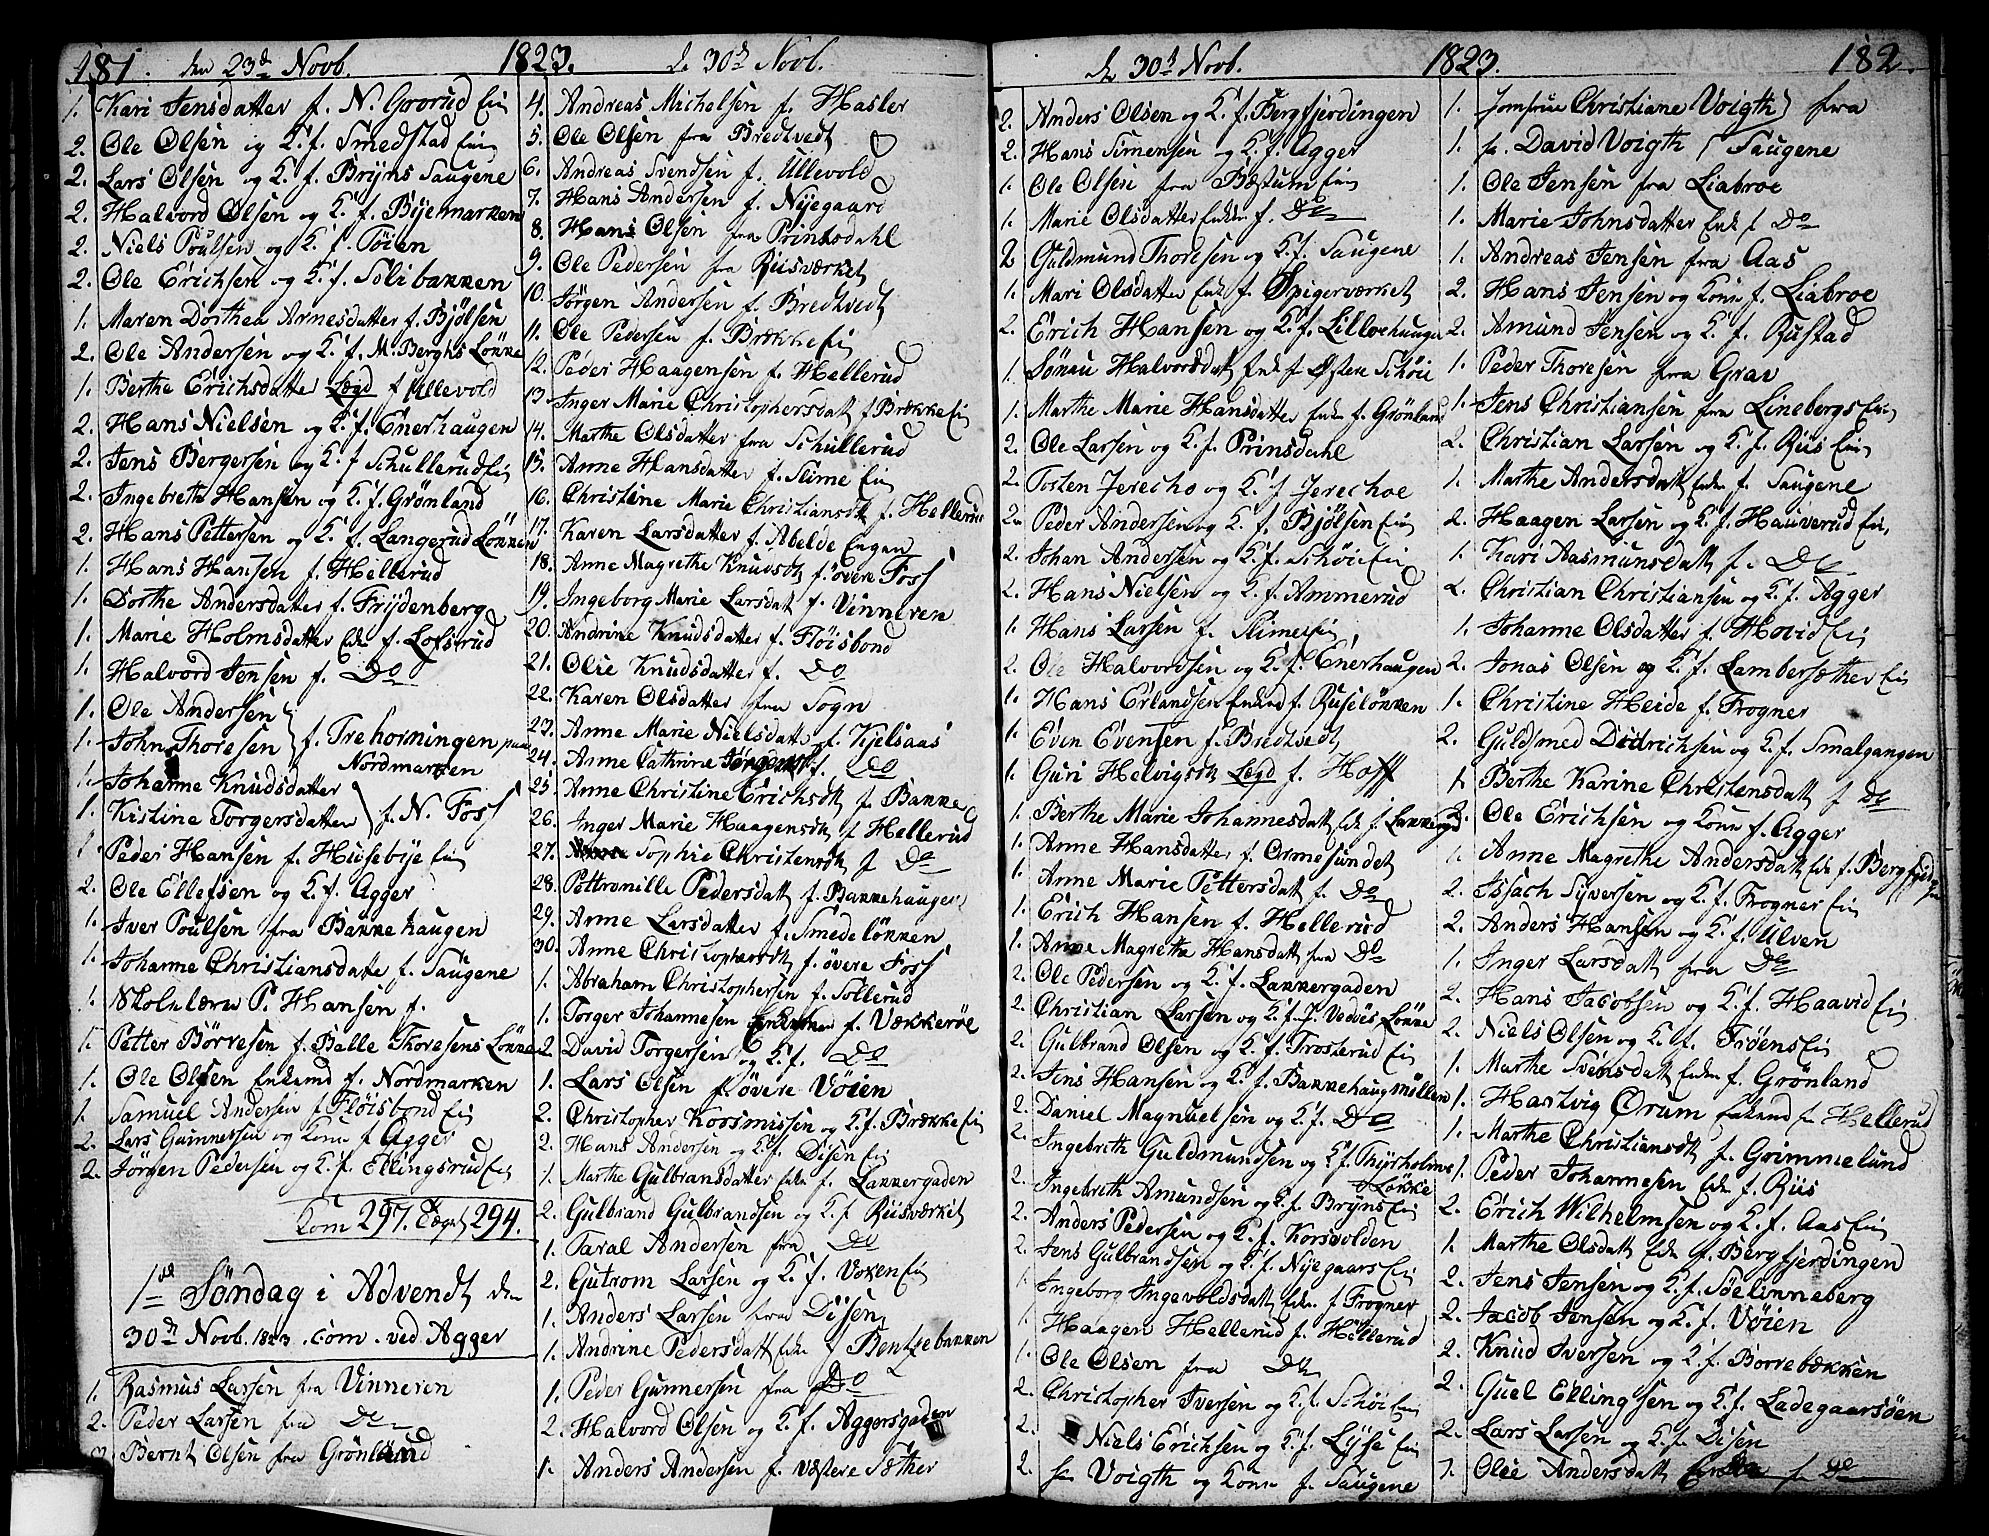 181. den 23d Novb. 1823. d 30d Novb.
1. Kari Jensdatter f. N. Goorud Eie
2. Ole Olsen og K. f. Smedstad Eie
2. Lars Olsen og K. f. Bryns Saugene
2. Halvord Olsen og K. f. Byemarken
2. Niels Poulsen og K. f. Töien
2. Ole Erichsen og K. f. Solibakken
1. Maren Dorthea Arnesdatter f. Bjölsen
2. Ole Andersen og K. f. M. Berghs Lökke
1. Berthe Erichsdatter Lægd f Ullevold
2. Hans Nielsen og K. f. Enerhaugen
2. Jens Bergersen og K. f Schullerud Eie
2. Ingebreth Hansen og K. f. Grönland
2. Hans Pettersen og K. f. Langerud Lökken
1. Hans Hansen f. Hellerud
1. Dorthe Andersdatter f. Frydenberg
1. Marie Holmsdatter Enke f. Lofsrud
1. Halvord Jensen f. Do
1. Ole Andersen
1. John Thoresen } f. Trehorningen paa
Nordmarken
1. Johanne Knudsdatter
1. Kistine Torgersdatter } f. N. Foss
1. Peder Hansen f. Husebye Eie
2. Ole Ellefsen og K. f. Agger
1. Iver Poulsen fra Bakkehaugen
1. Johanne Christiansdatte f. Saugene
1. Skolelærer P. Hansen f.
1. Petter Börresen f. Balle Thoresens Lökke
1. Ole Olsen Enkemd f. Nordmarken
1. Samuel Andersen f Flöisbond Eie
2. Lars Gunnersen og Kone f Agger
2. Jörgen Pedersen og K. f. Ellingsrud Eie
Kom 297. 294.
1ste Söndag i Advendt den
30te Novb. 1823. Com. ved Agger
1. Rasmus Larsen fra Vinneren
2. Peder Larsen fra Do
3. Bernt Olsen fra Grönland
4. Andreas Michelsen f. Hasler
5. Ole Olsen fra Bredtvedt
6. Andreas Svendsen f. Ullevold
7. Hans Andersen f. Nyegaard
8. Hans Olsen fra Prinsdahl
9. Ole Pedersen fra Riisværket
10. Jörgen Andersen f. Bredtvedt
11. Ole Pedersen f. Brække Eie
12. Peder Haagensen f. Hellerud
13. Inger Marie Christophersdatt f Brække Eie
14. Marthe Olsdatter fra Schullerud
15. Anne Hansdatter f. Slime Eie
16. Christine Marie Christiansdt f. Hellerud
17. Karen Larsdatter f. Abelde Engen
18. Anne Magrethe Knudsdt f. övere Foss
19. Ingeborg Marie Larsdatt f. Vinneren
20. Andrine Knudsdatter f. Flöisbond
21. Olie Knudsdatter f. Do
22. Karen Olsdatter fra Sogn
23. Anne Marie Nielsdatter f. Kjelsaas
24. Anne Cathrine f. Do
25. Anne Christine Erichsdt f Bakke
26. Inger Marie Haagensdt f Hellerud
27. Sophie Christensdt f Do
28. Pettronille Pedersdatt f. Bakkehaugen
29. Anne Larsdatter f. Smedelökken
30. Anne Christophersdt f. övere Foss
1. Abraham Christophersen f. Sollerud
1. Torger Johannesen f. Vækkeröe
2. David Torgersen og K. f. Do
1. Lars Olsen f. övere Vöien
2. Christopher Koosmissen og K. f. Brække Eie
2. Hans Andersen og K. f. Disen Eie
1. Marthe Gulbransdatter Enke f. Lakkergaden
2. Gulbrand Gulbrandsen og K. f Riisværket
1. Taral Andersen fra Do
2. Gutrom Larsen og K. f. Voxen Eie
1. Anders Larsen fra Disen
1. Andrine Pedersdatt Enke f Bentzebakken
1. Peder Gunnersen fra Do
2. Halvord Olsen og K. f. Aggersgaden
1. Anders Andersen f. Væstere Sæther
d 30t Novb. 1823. 182.
2. Anders Olsen og K. f. Bergfjerdingen
2. Hans Simensen og K. f. Agger
1. Ole Olsen fra Bæstum Eie
1. Marie Olsdatter Enke f. Do
2 Guldmund Thoresen og K. f. Saugene
1. Mari Olsdatter Enke f. Spigerværket
2. Erich Hansen og K. f. Lilloehaugen
1. Sönau Halvorsdatt Enk f Östere Schöie
1. Marthe Marie Hansdatter Enke f. Grönland
2. Ole Larsen og K. f. Prinsdahl
2. Tosten Jerecho og K. f Jerechoe
2. Peder Andersen og K. f. Bjölsen Eie
2. Johan Andersen og K. f. Schöie Eie
2. Hans Nielsen og K. f. Ammerud
1. Hans Larsen f. Slime Eie
2. Ole Halvordsen og K. f. Enerhaugen
1. Hans Erlandsen Enkmd f. Ruselökken
1. Even Evensen f. Bredtvedt
1. Guri Helvigsdt Lægd f. Hoff
1. Berthe Marie Johannesdatt Enk f. Lakkergd
1. Anne Hansdatter f. Ormesundet
1. Anne Marie Pettersdatt f. Do
1. Erich Hansen f. Hellerud
1. Anne Magretha Hansdatt fra Do
2. Ole Pedersen og K. f. Lakkergaden
2. Christian Larsen og K. f. J. Vedvés Lökke
2. Gulbrand Olsen og K. f. Trosterud Eie
2. Jens Hansen og K. f. Bakkehaugmöllen
2. Daniel Magnuelsen og K. f. Do
2. Ingebreth Guldmundsen og K. f. Thyrholms
Lökke
2. Ingebreth Amundsen og K. f. Bryns Eie
2. Anders Pedersen og K. f. Korsvolden
2. Jens Gulbrandsen og K. f. Nyegaars Eie
1. Ingeborg Ingevoldsdatt Enke f Frogner
1. Haagen Hellerud f. Hellerud
1. Ole Olsen fra Do
2. Christopher Iversen og K. f. Schöie Eie
2. Niels Erichsen og K. f. Lyse Eie
2. hr Voigth og Kone f. Saugene
1. Jomfrue Christiane Voigth } fra
1. hr. David Voigth } Saugene
1. Ole Jensen fra Liabroe
1. Marie Johnsdatter Enk f Do
1. Andreas Jensen fra Aas
2. Hans Jensen og Kone f. Liabroe
2. Amund Jensen og K. f. Rustad
1. Peder Thoresen fra Grav
1. Jens Christiansen fra Linebergs Eie
2. Christian Larsen og K. f. Riis Eie
1. Marthe Andersdatt Enke f. Saugene
2. Haagen Larsen og K. f. Hauverud Eie
1. Kari Aasmunsdatt f. Do
2. Christian Christiansen og K. f. Agger
1. Johanne Olsdatter f. Hovid Eie
2. Jonas Olsen og K. f. Lambersæther Eie
1. Christine Heide f. Frogner
2. Guldsmed Didrichsen og K. f. Smalgangen
1. Berthe Karine Christensdatt f Do
2. Ole Erichsen og Kone f. Agger
1. Anne Magrethe Andersdatt Enk f. Bergfjerdingen
2. Issach Syversen og K. f. Frogner Eie
2. Anders Hansen og K. f. Ulven
1. Inger Larsdatt fra Do
2. Hans Jacobsen og K. f. Haavid Eie
2. Niels Olsen og K. f. Fröens Eie
1. Marthe Svensdatt Enke f. Grönland
1. Hartvig Orum Enkemd f Hellerud
1. Marthe Christiansdt f. Grimmelund
1. Peder Johannesen Enk f. Riis
2. Erich Wilhelmsen og K. f. Aas Eie
1. Marthe Olsdatt Enke f. Bergfjerdingen
2. Jens Jensen og K. f. Söelinneberg
2. Jacob Jensen og K. f. Vöien
2. Knud Iversen og K. f. Borrebækken
2. Guel Ellingsen og K. f. Ladegaarsöen
2. Lars Larsen og K. f. Disen
1. Olie Andersdatt f Do